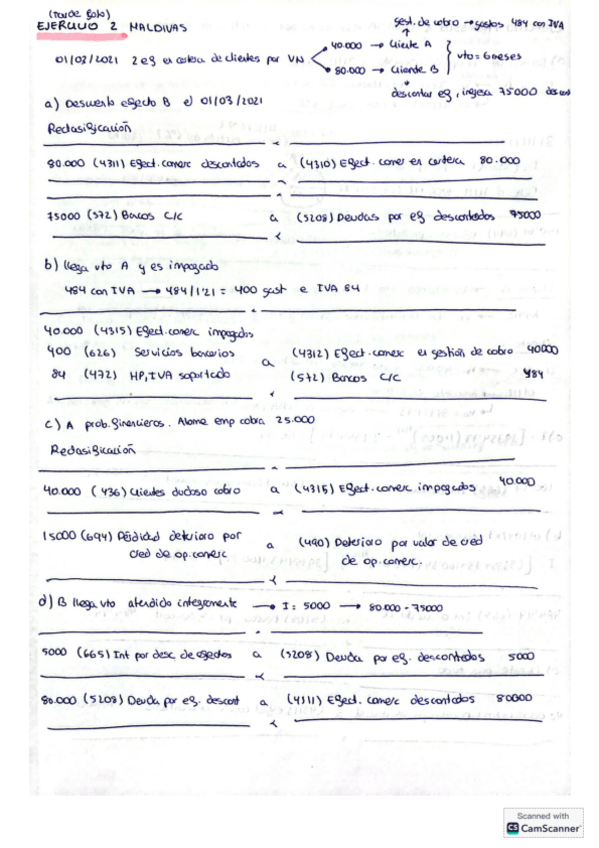 (tarde solo)
EJERCICIO 2 MALDIVAS
gest. de cobro → gastos 484 con IVA
01/02/2021 2 eg en cartera de clientes por VN
40.000 → Cliente A
80.000 → Cliente B
vto = 6 meses
descontar eg, ingresa 75000
a) Descuento efecto B el 01/03/2021
Reclasificación
80.000 (4311) Efect. comerc descontados a (4310) Efect. comer en cartera 80.000
75000 (572) Bancos C/C a (5208) Deudas por ef descontados 75000
b) llega vto A y es impagado
484 con IVA → 484/1'21 = 400 gast e IVA 84
40.000 (4315) Efect. comerc impagados
400 (626) Servicios bancarios
84 (472) HP, IVA soportado
a
(4312) Efect. comerc en gestión de cobro 40000
(572) Bancos C/C 484
c) A prob. financieros. Alome emp cobra 25.000
Reclasificación
40.000 (436) Clientes dudoso cobro a (4315) Efect. comerc impagados 40.000
15000 (694) Pérdidad deterioro por cred de op. comerc
a
(490) Deterioro por valor de cred de op. comerc.
d) B llega vto atendido integramente → I = 5000 → 80.000 - 75000
5000 (665) Int por desc. de efectos a (5208) Deuda por ef. descontados 5000
80.000 (5208) Deuda por ef. descont a (4311) Efect. comerc descontados 80000
Scanned with
CS CamScanner